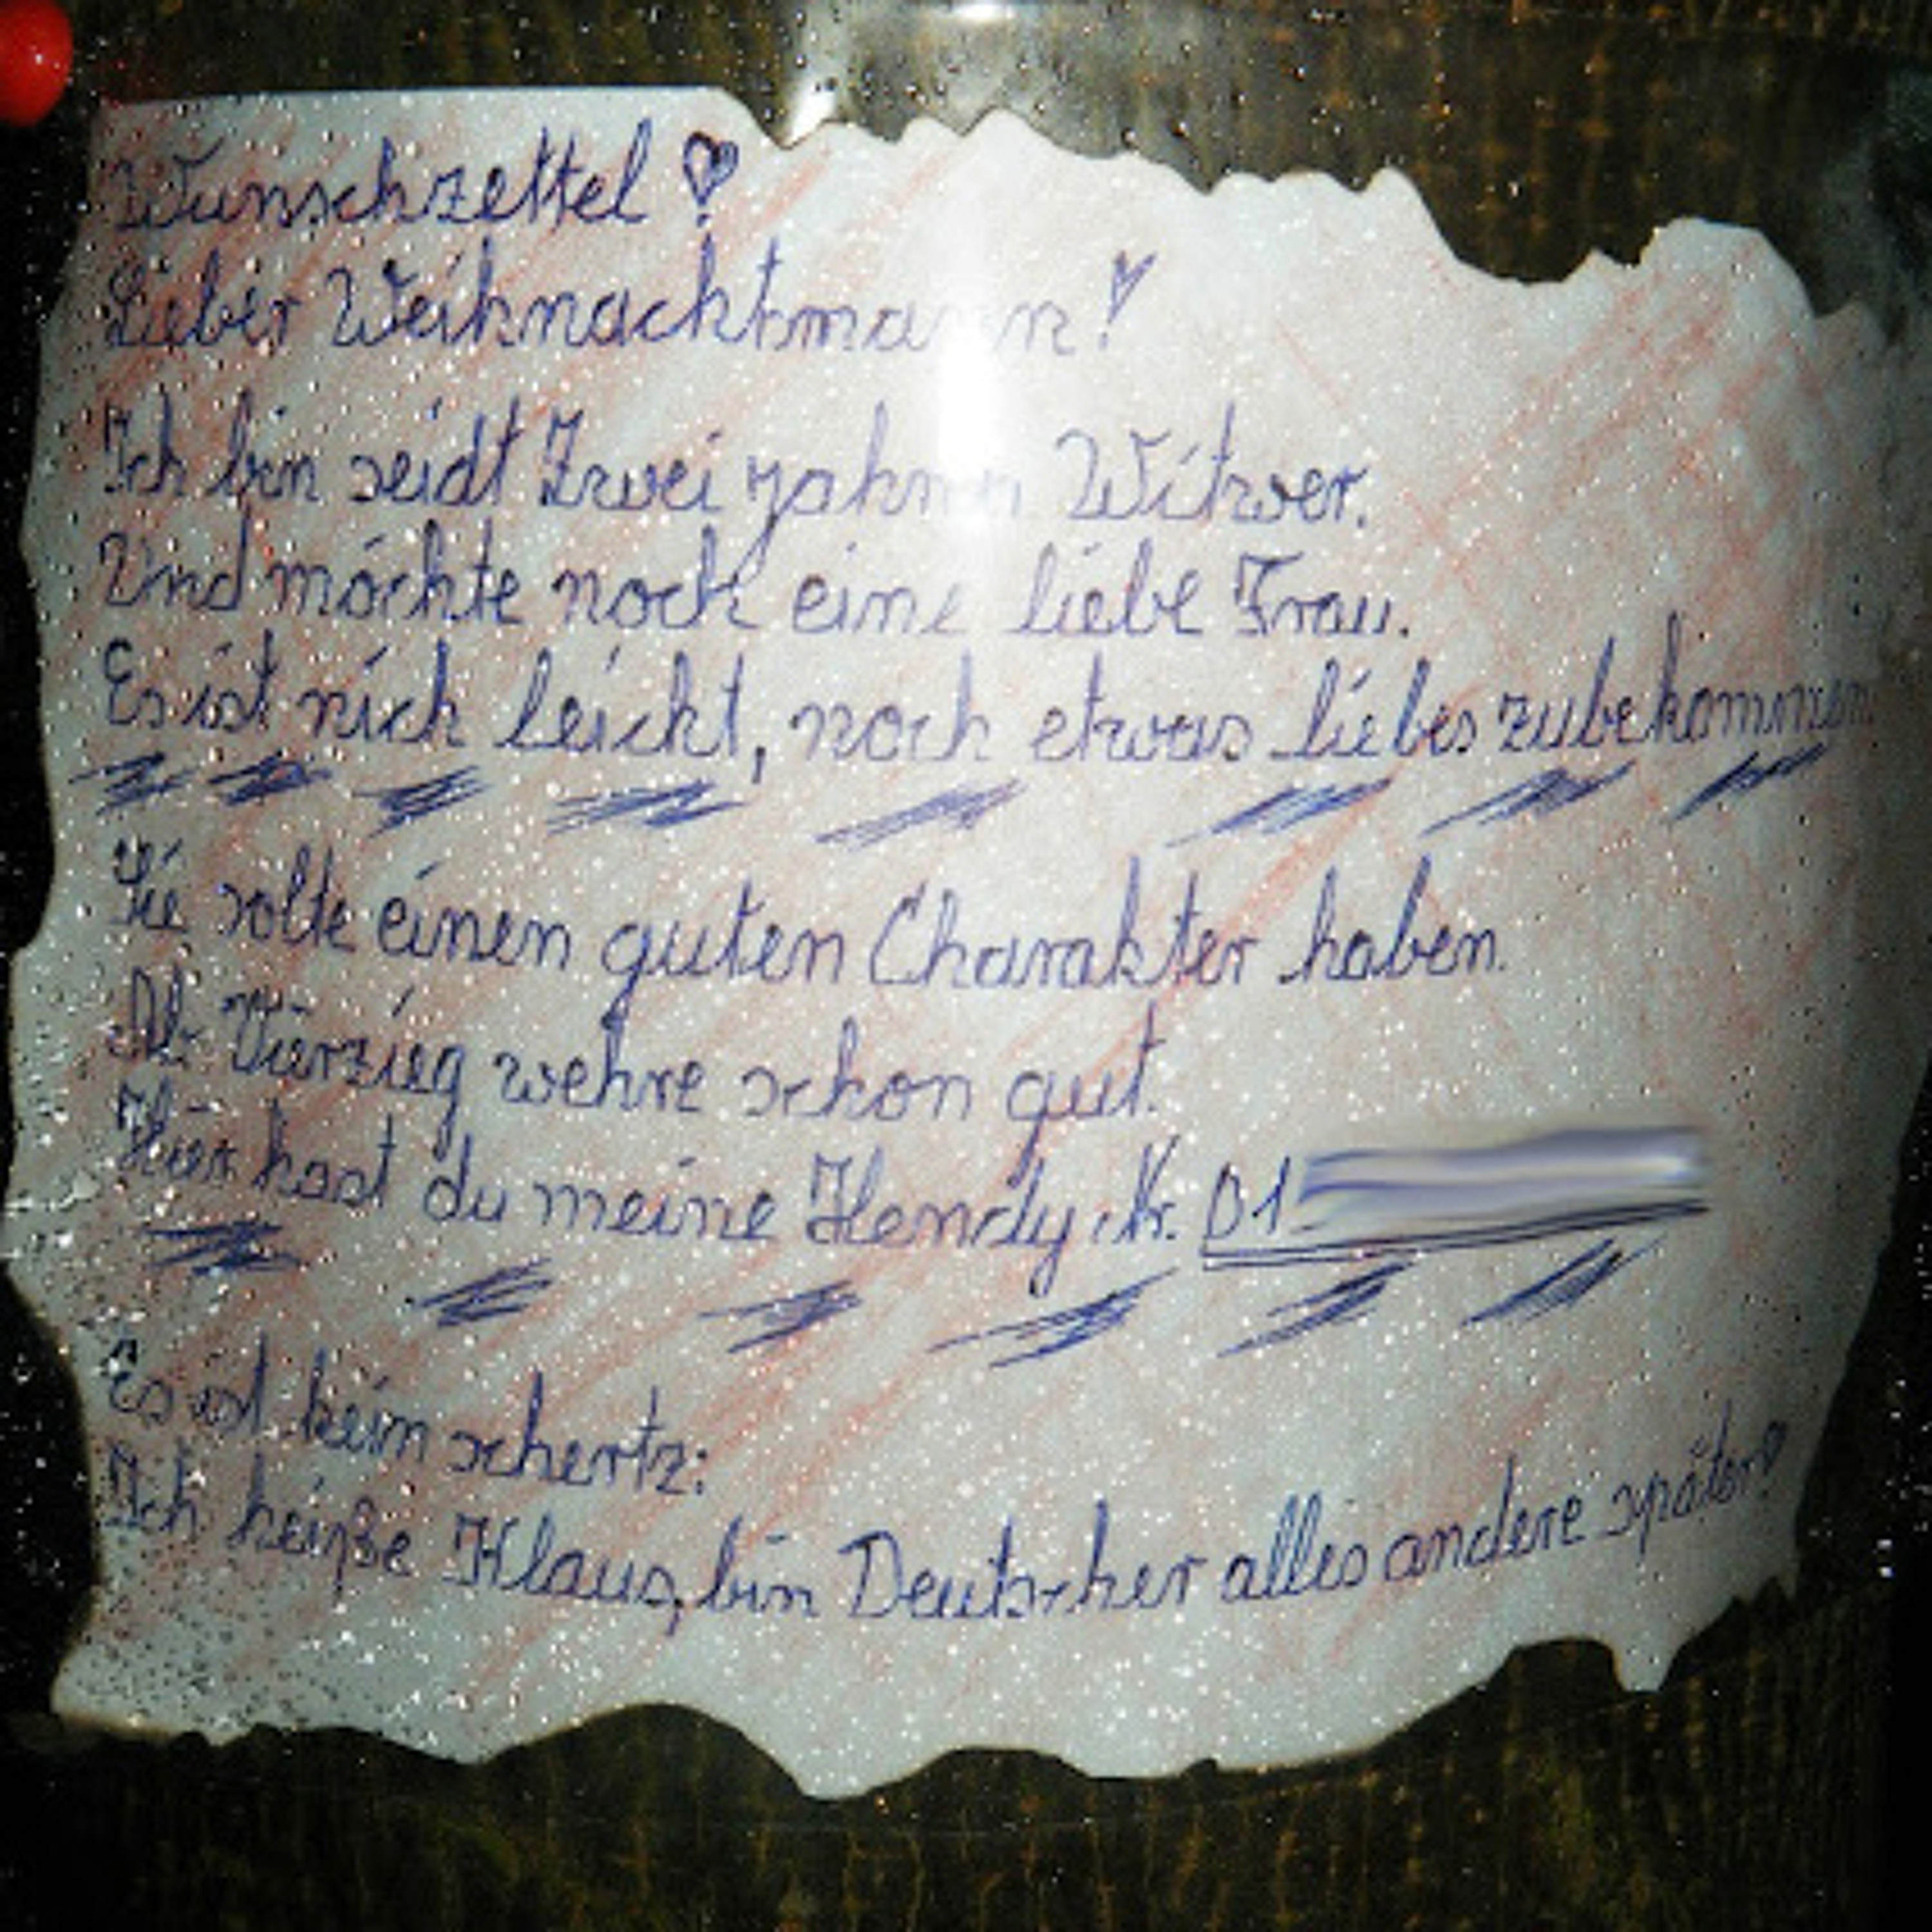 Wunschzettel!
Lieber Weihnachtsmann!
Ich bin seidt Zwei Witwer.
Und möchte noch eine liebe Frau.
Es ist nich leicht, noch etwas liebes zubekommen.
Sie solte einen guten Charakter haben.
Ab Vierzieg wehre schon gut.
Hier hast du meine Hendy Nr. 01
Es ist keim schertz:
Ich heiße Klaus, bin Deutscher alles andere später!